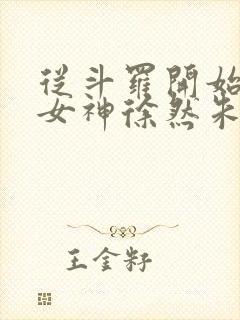 從斗羅開始
女神徐然朱
王金籽